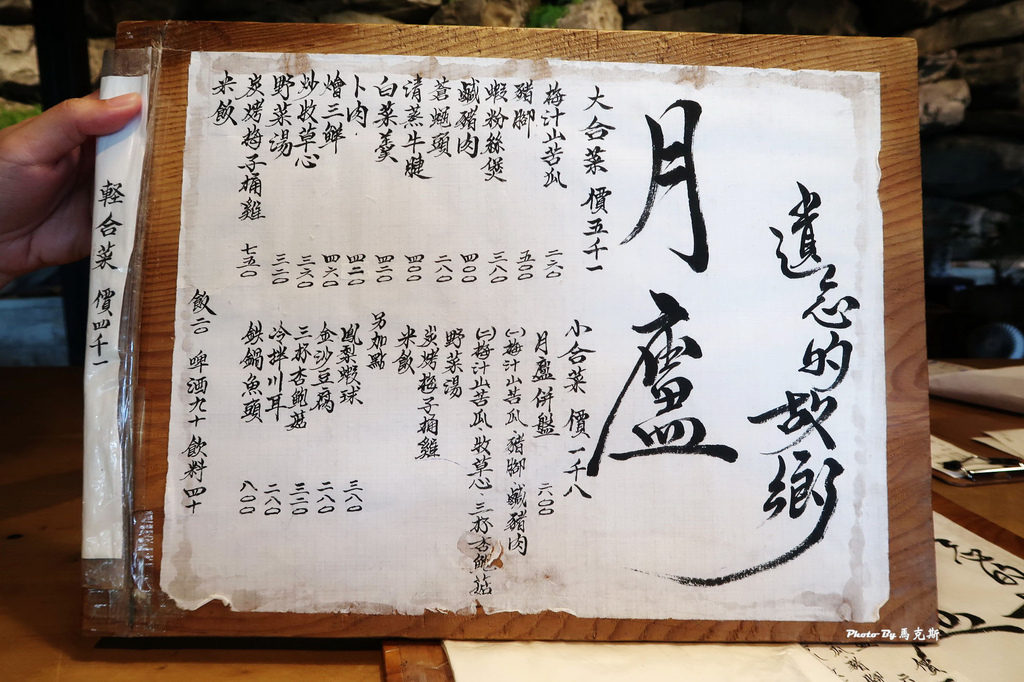 遺忘的故鄉
月廬
大合菜 價五千一
梅汁山苦瓜 二六〇
豬腳 五〇〇
蝦粉絲煲 三八〇
鹹豬肉 四〇〇
蒼蠅頭 二八〇
清蒸牛腱 四〇〇
白菜羹 四二〇
卜肉 四二〇
燴三鮮 四六〇
炒牧草心 三六〇
野菜湯 三二〇
炭烤梅子桶雞 七五〇
米飯
小合菜 價一千八
月廬併盤 六〇〇
㈠梅汁山苦瓜.豬腳.鹹豬肉
㈡梅汁山苦瓜.牧草心.三杯杏鮑菇
野菜湯
炭烤梅子桶雞
米飯
另加點
鳳梨蝦球 三八〇
金沙豆腐 二八〇
三杯杏鮑菇 三二〇
冷拌川耳 二八〇
鉄鍋魚頭 八〇〇
飯二〇 啤酒九十 飲料四十
軽合菜 價四千一
Photo By 馬克斯